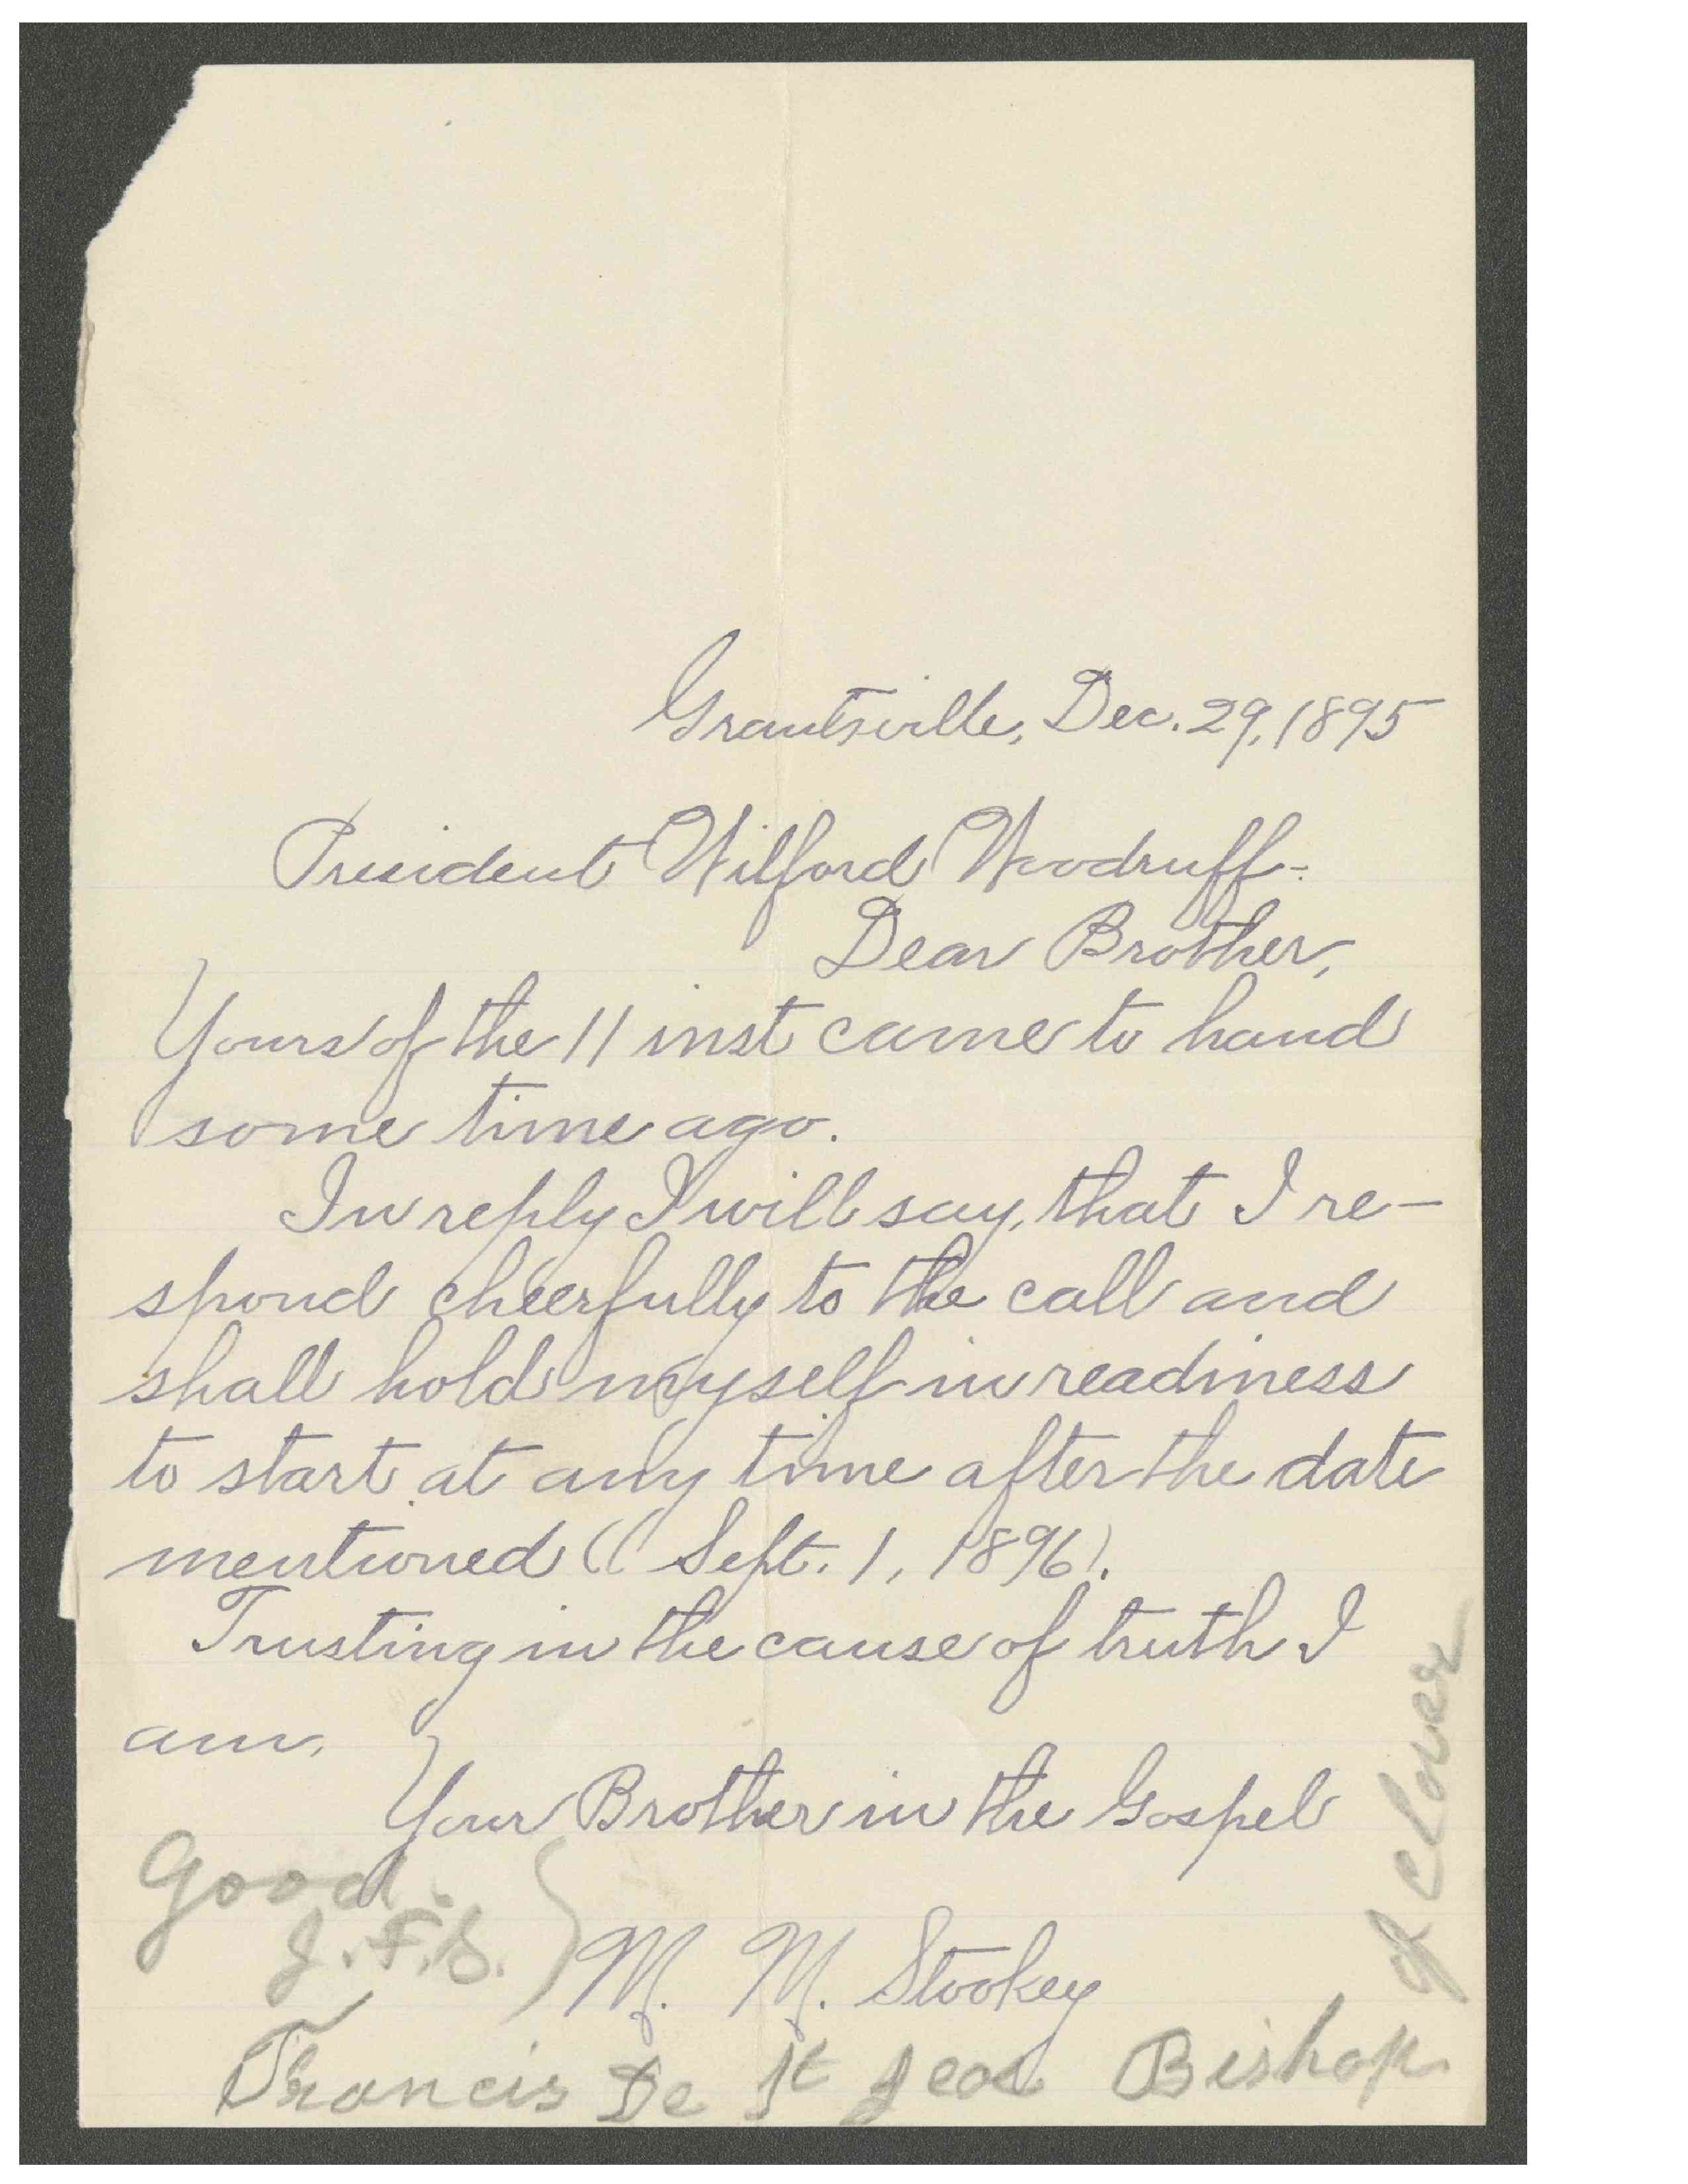 Grantsville, Dec. 29, 1895
President Wilford Woodruff-
Dear Brother,
Yours of the 11 inst came to hand
some time ago.
In reply I will say, that I re-
spond cheerfully to the call and
shall hold myself in readiness
to start at any time after the date
mentioned (Sept. 1, 1896).
Trusting in the cause of truth I
am,
Your Brother in the Gospel
M. M. Stookey
Good.
J. F. S.
Francis De St Jeor Bishop
of Clover